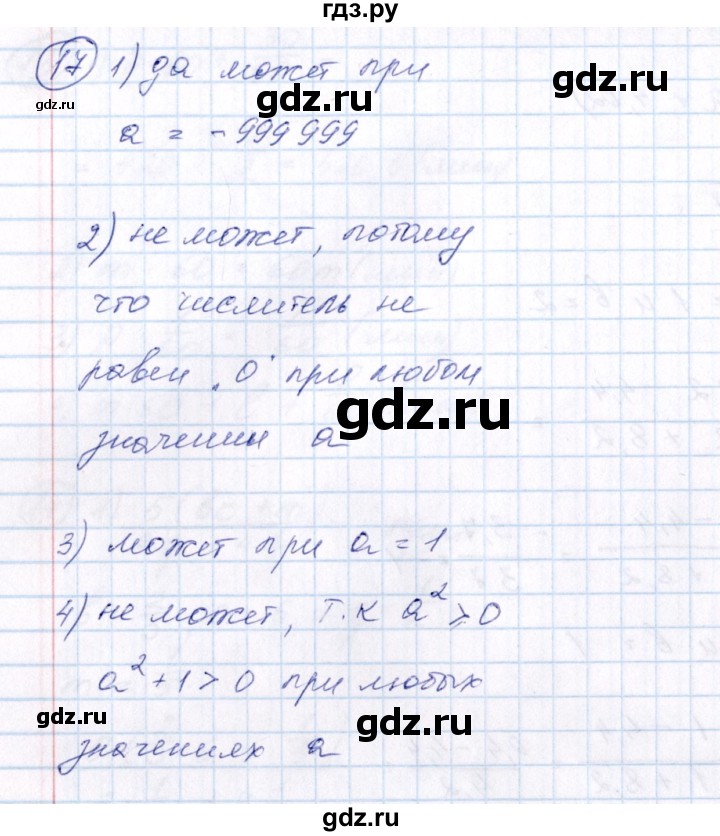 гдз.ру
17 1) да может при
а = - 999 999
gdz.ru
gdz.ru
2) не может, потому
что числитель не
равен „0" при любом
gdz.ru
gdz.ru
значении а
3) может при а = 1
4) не может, т.к а² ≥ 0
а² + 1 > 0 при любых
gdz.ru
gdz.ru
значениях а
gdz.ru